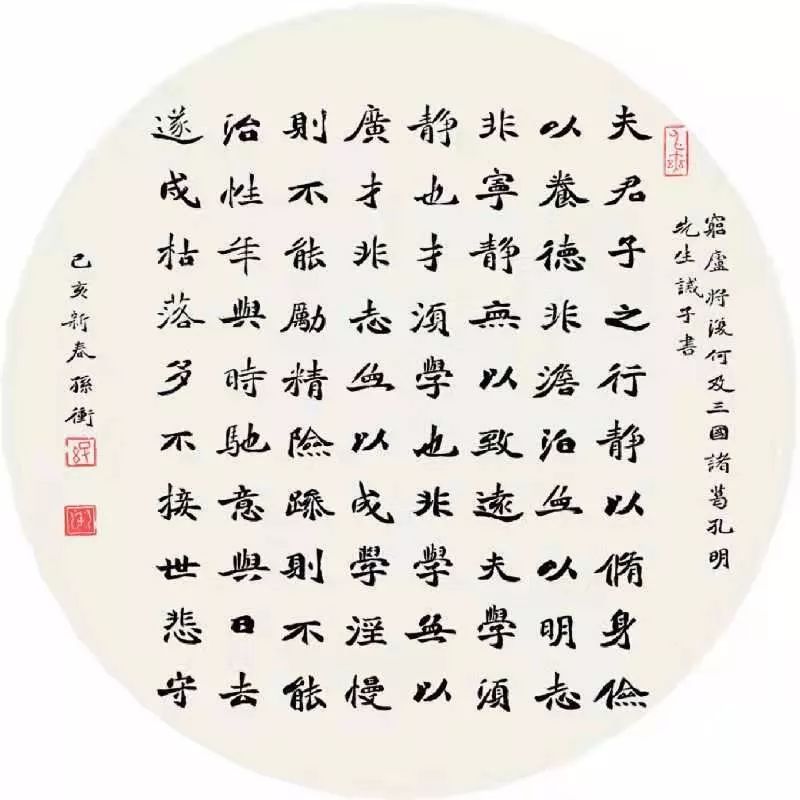 夫君子之行静以脩身儉
以養德非澹泊無以明志
非寧静無以致遠夫學須
静也才須學也非學無以
廣才非志無以成學淫慢
則不能勵精險躁則不能
治性年與時馳意與日去
遂成枯落多不接世悲守
窮廬將復何及三國諸葛孔明
先生誡子書
己亥新春孫衡